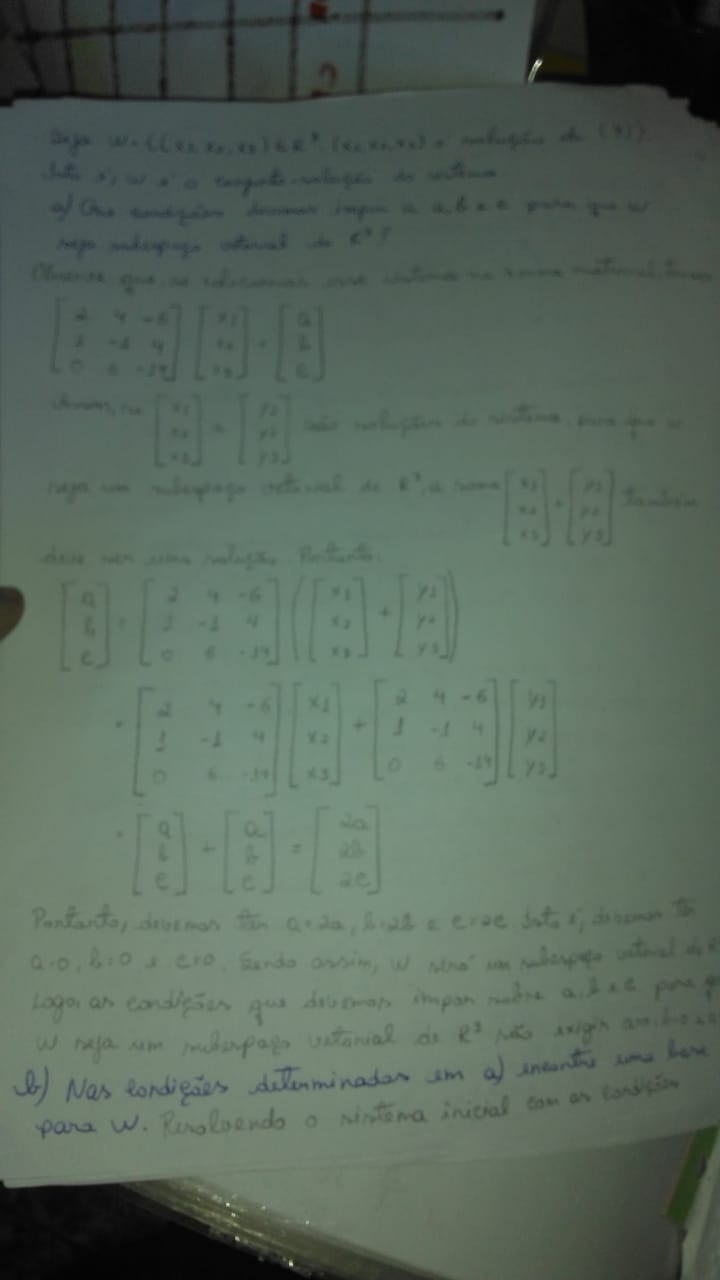 Seja W = {(x1, x2, x3) ∈ R³: (x1, x2, x3) é solução de (*)}
Isto é, W é o conjunto-solução do sistema
a) Que condições devemos impor a a, b e c para que W
seja subespaço vetorial de R³?
Observe que, se colocarmos esse sistema na forma matricial, temos
[2 4 -6; 1 -1 4; 0 6 -14] [x1; x2; x3] = [a; b; c]
Assim, se [x1; x2; x3] e [y1; y2; y3] são soluções do sistema, para que W
seja um subespaço vetorial de R³, a soma [x1; x2; x3] + [y1; y2; y3] também
deve ser uma solução. Portanto:
[a; b; c] = [2 4 -6; 1 -1 4; 0 6 -14] ([x1; x2; x3] + [y1; y2; y3])
= [2 4 -6; 1 -1 4; 0 6 -14] [x1; x2; x3] + [2 4 -6; 1 -1 4; 0 6 -14] [y1; y2; y3]
= [a; b; c] + [a; b; c] = [2a; 2b; 2c]
Portanto, devemos ter a=2a, b=2b e c=2c. Isto é, devemos ter
a=0, b=0 e c=0. Sendo assim, W será um subespaço vetorial de
Logo, as condições que devemos impor sobre a, b e c para
W seja um subespaço vetorial de R³ são exigir a=0, b=0
b) Nas condições determinadas em a) encontre uma base
para W. Resolvendo o sistema inicial com as condições